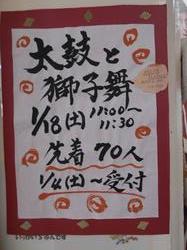 太鼓と
獅子舞
1/18(土) 11:00~
11:30
先着 70人
1/4(土)~受付